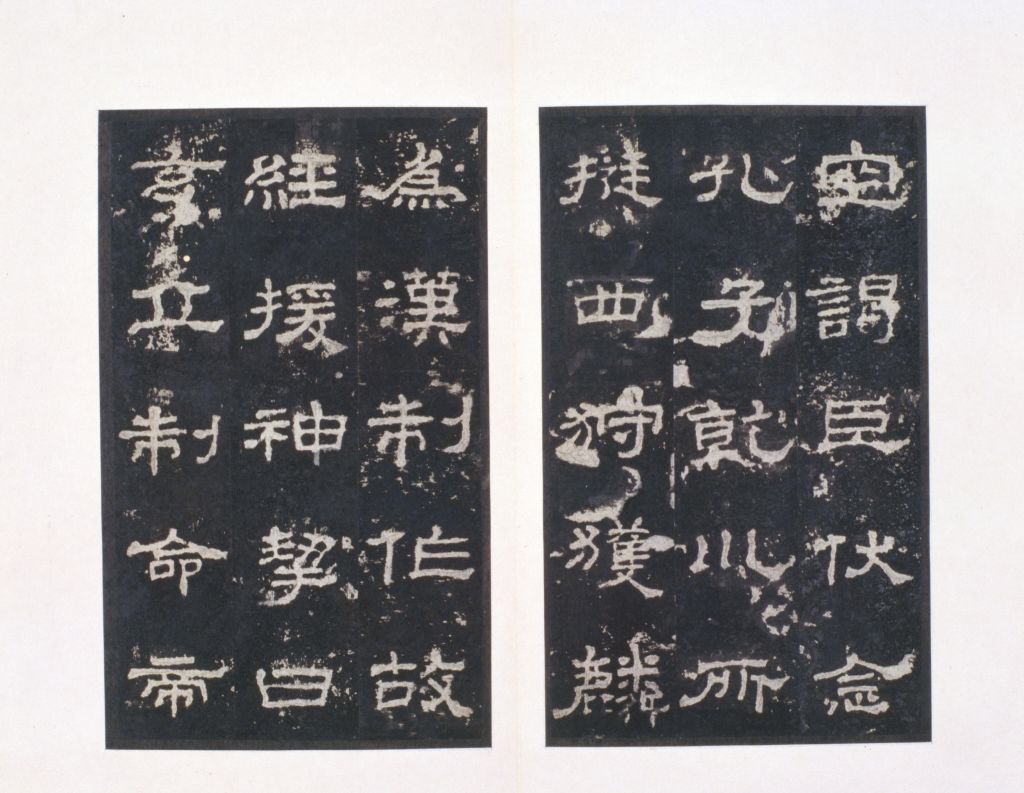 空謁臣伏念
孔子乾巛所
挺西狩獲麟
為漢制作故
經援神挈曰
玄丘制命帝